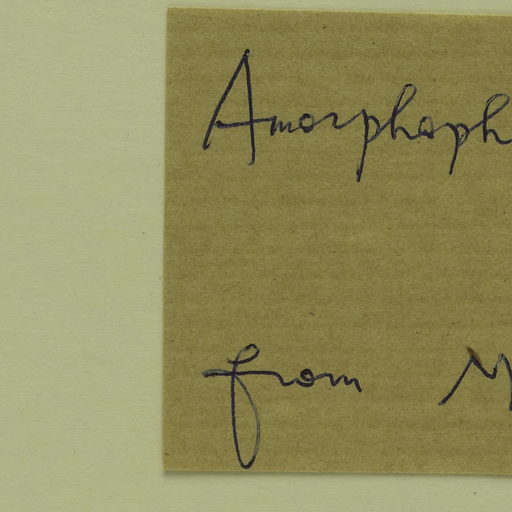 Amorphoph
from M